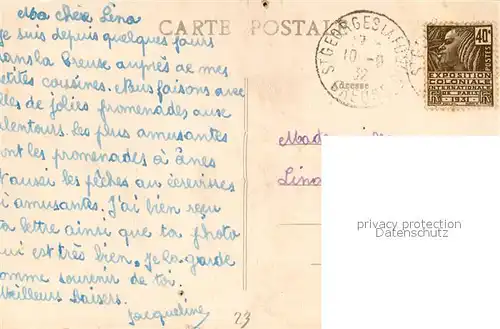 Ma chère Lina
Je suis depuis quelques jours
dans la Creuse auprès de mes
petites cousines. Nous faisons avec
elles de jolies promenades aux
alentours. Les plus amusantes
sont les promenades à ânes
et aussi les pêches aux écrevisses
si amusantes. J'ai bien reçu
ta lettre ainsi que ta photo
qui est très bien. Je la garde
comme souvenir de toi.
Meilleurs baisers.
Jacqueline
23
CARTE POSTALE
ST GEORGES LA
10 - 8
32
CREUSE
40c
POSTES
EXPOSITION
COLONIALE
INTERNATIONALE
DE PARIS
1931
Adresse
Mad
Lina
privacy protection
Datenschutz